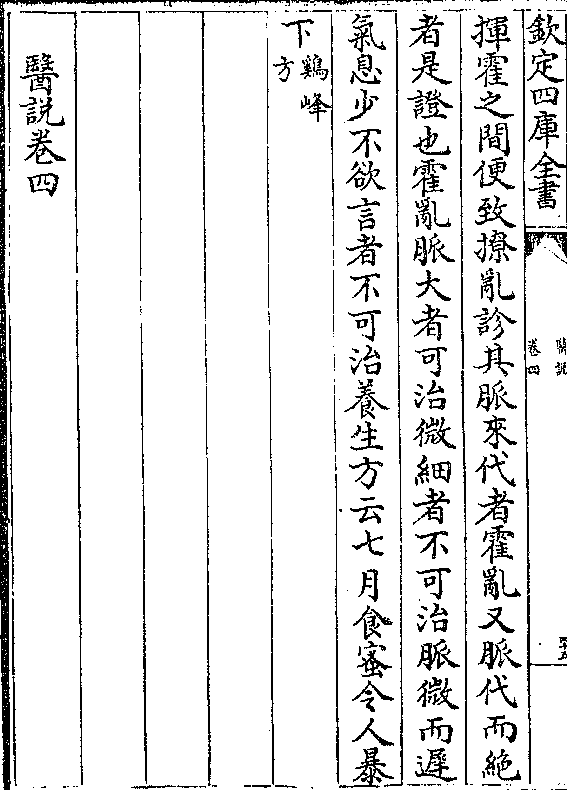 欽定四庫全書
醫説
卷四
揮霍之間便致撩亂診其脈來代者霍亂又脈代而絶
者是證也霍亂脈大者可治微細者不可治脈微而遲
氣息少不欲言者不可治養生方云七月食蜜令人暴
下
鷄峰
方
醫説卷四